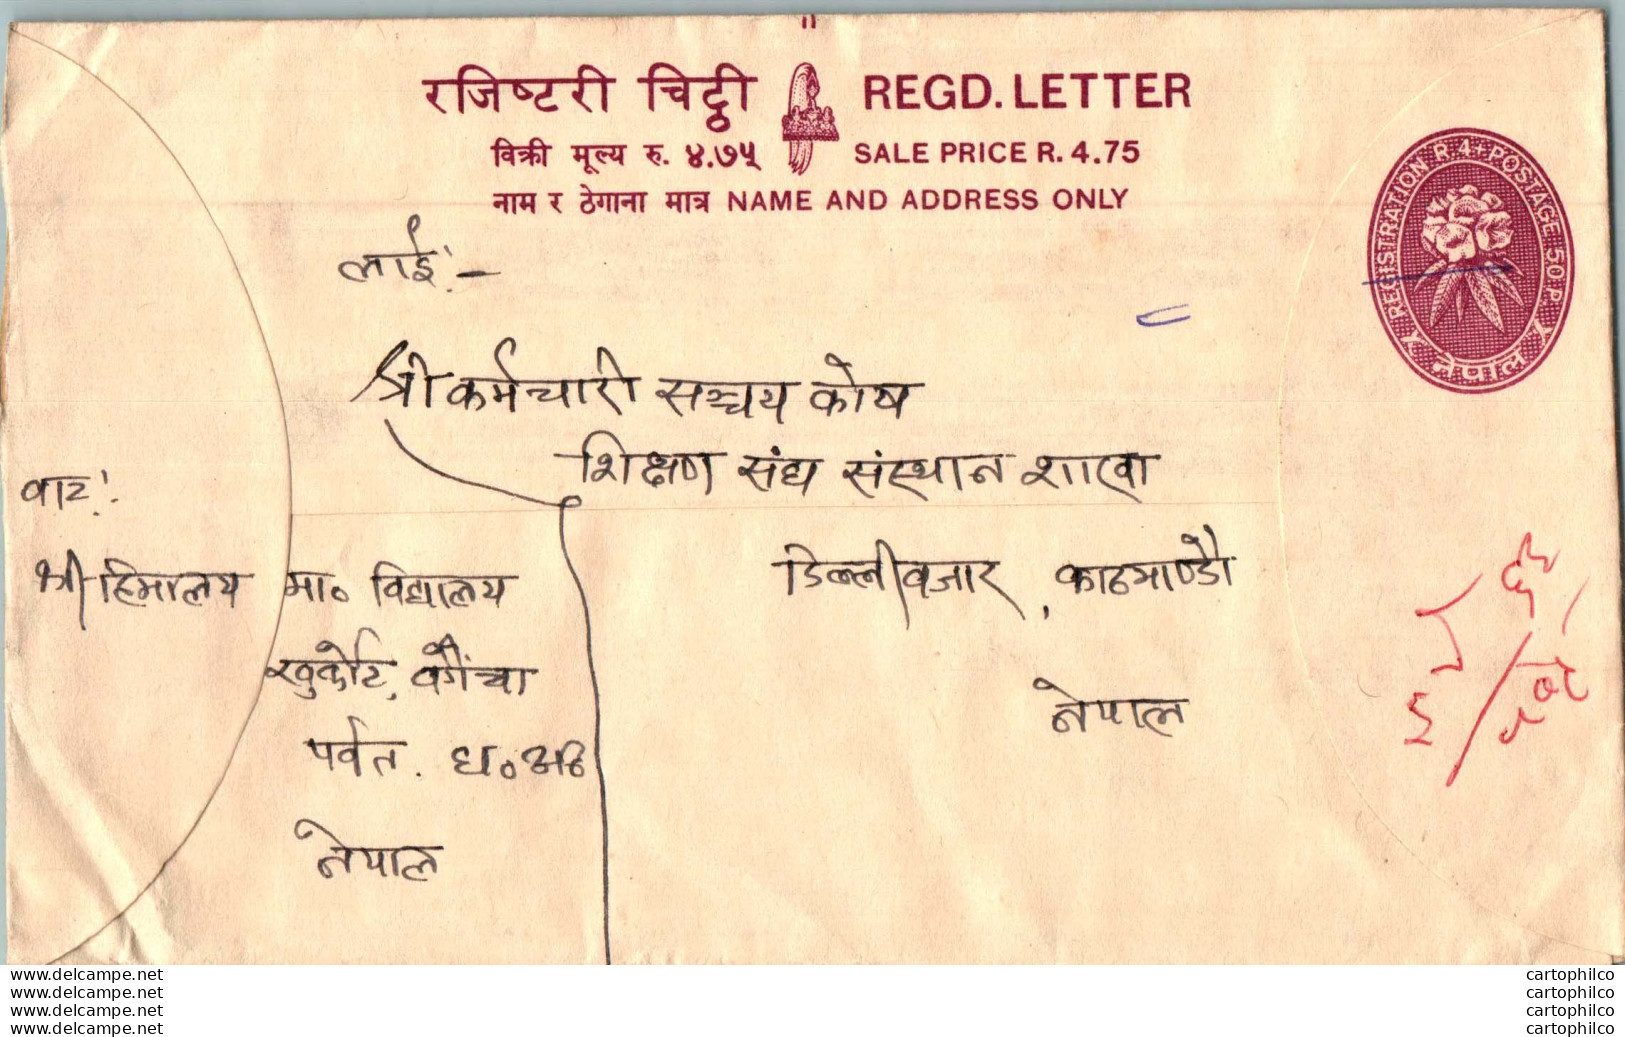 रजिष्टरी चिट्ठी REGD. LETTER
विक्री मूल्य रु. ४.७५ SALE PRICE R. 4.75
नाम र ठेगाना मात्र NAME AND ADDRESS ONLY
REGISTRATION R 4 + POSTAGE 50 P.
नेपाल
लाई:-
श्री कर्मचारी सञ्चय कोष
शिक्षण संघ संस्थान शाखा
डिल्लीबजार, काठमाण्डौ
नेपाल
वाट:
श्री हिमालय मा० विद्यालय
खुर्कोट,
पर्वत. ध०अ०
नेपाल
www.delcampe.net
www.delcampe.net
www.delcampe.net
www.delcampe.net
cartophilco
cartophilco
cartophilco
cartophilco